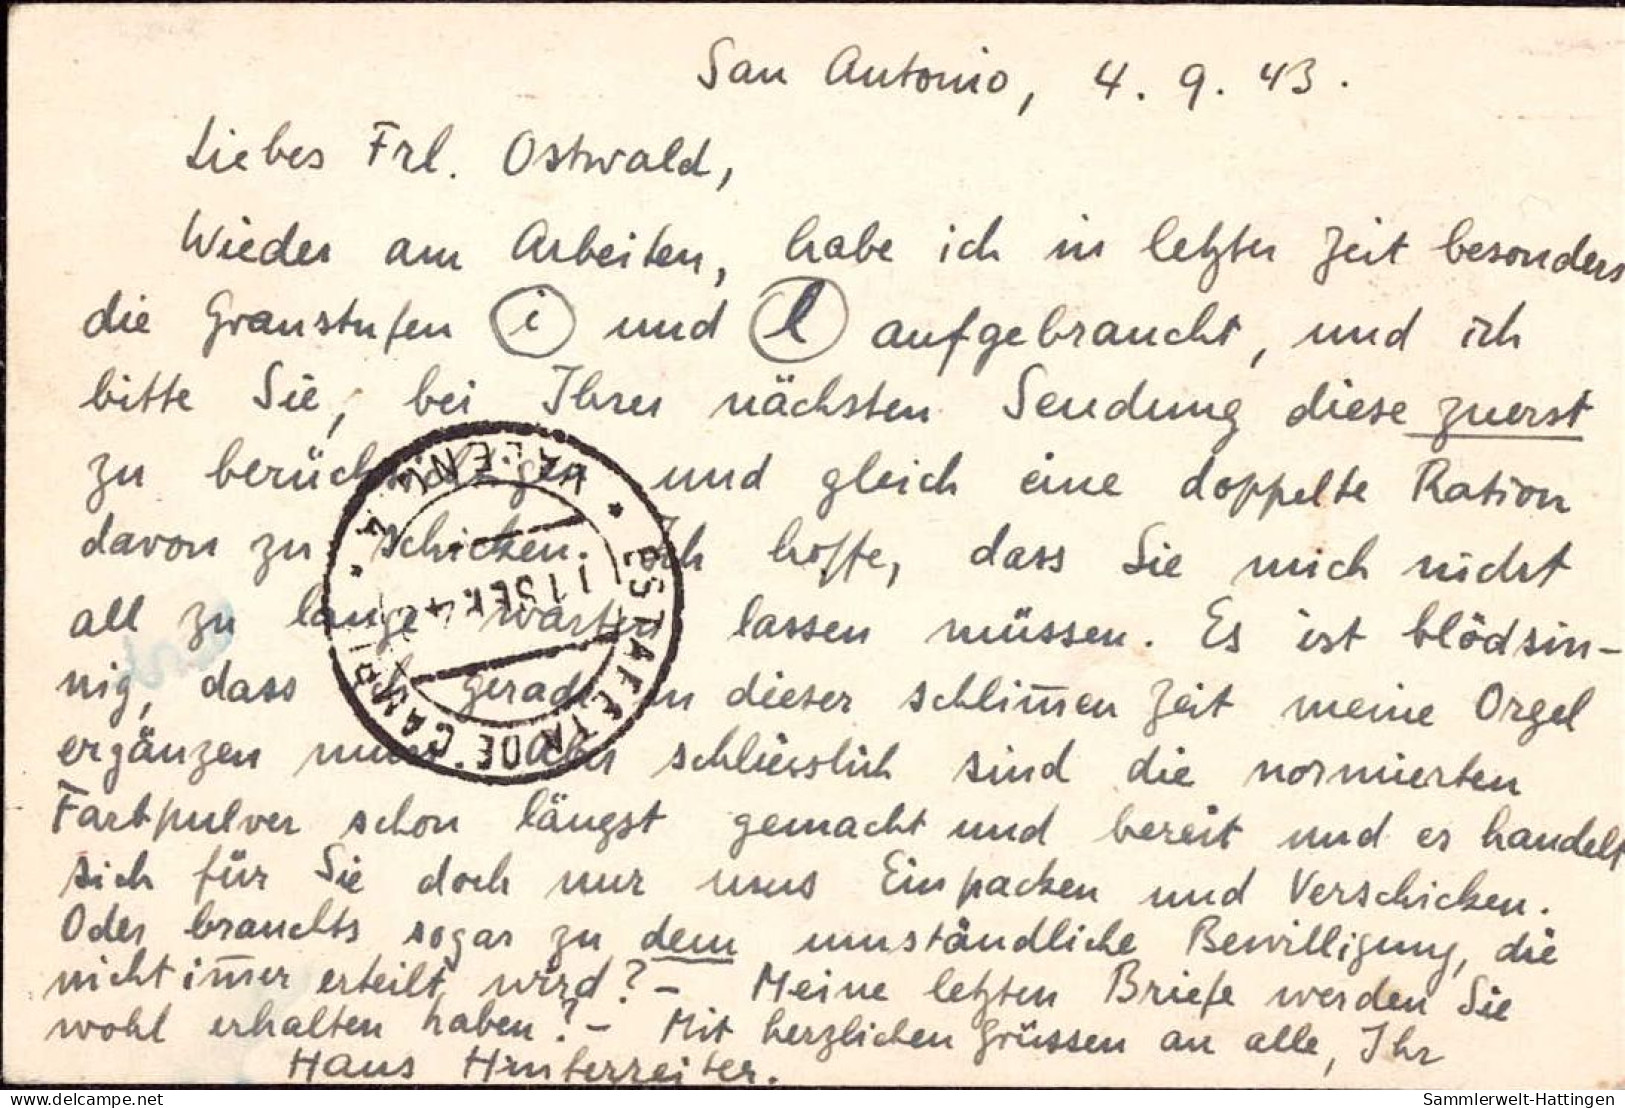 San Antonio, 4. 9. 43.
Liebes Frl. Ostwald,
Wieder am Arbeiten, habe ich in letzter Zeit besonders
die Graustufen i und l aufgebraucht, und ich
bitte Sie, bei Ihrer nächsten Sendung diese zuerst
zu berücksichtigen und gleich eine doppelte Ration
davon zu schicken. Ich hoffe, dass Sie mich nicht
all zu lange warten lassen müssen. Es ist blödsin-
nig, dass gerade in dieser schlim̅en Zeit meine Orgel
ergänzen muss. Aber schliesslich sind die normierten
Farbpulver schon längst gemacht und bereit und es handelt
sich für Sie doch nur ums Einpacken und Verschicken.
Oder brauchts sogar zu dem umständliche Bewilligung, die
nicht im̅er erteilt wird? – Meine letzten Briefe werden Sie
wohl erhalten haben? – Mit herzlichen Grüssen an alle, Ihr
Hans Hinterreiter.
ESTAFETA DE CAMPI
VALENCIA
11 SEP. 4
Sammlerwelt-Hattingen
delcampe.net